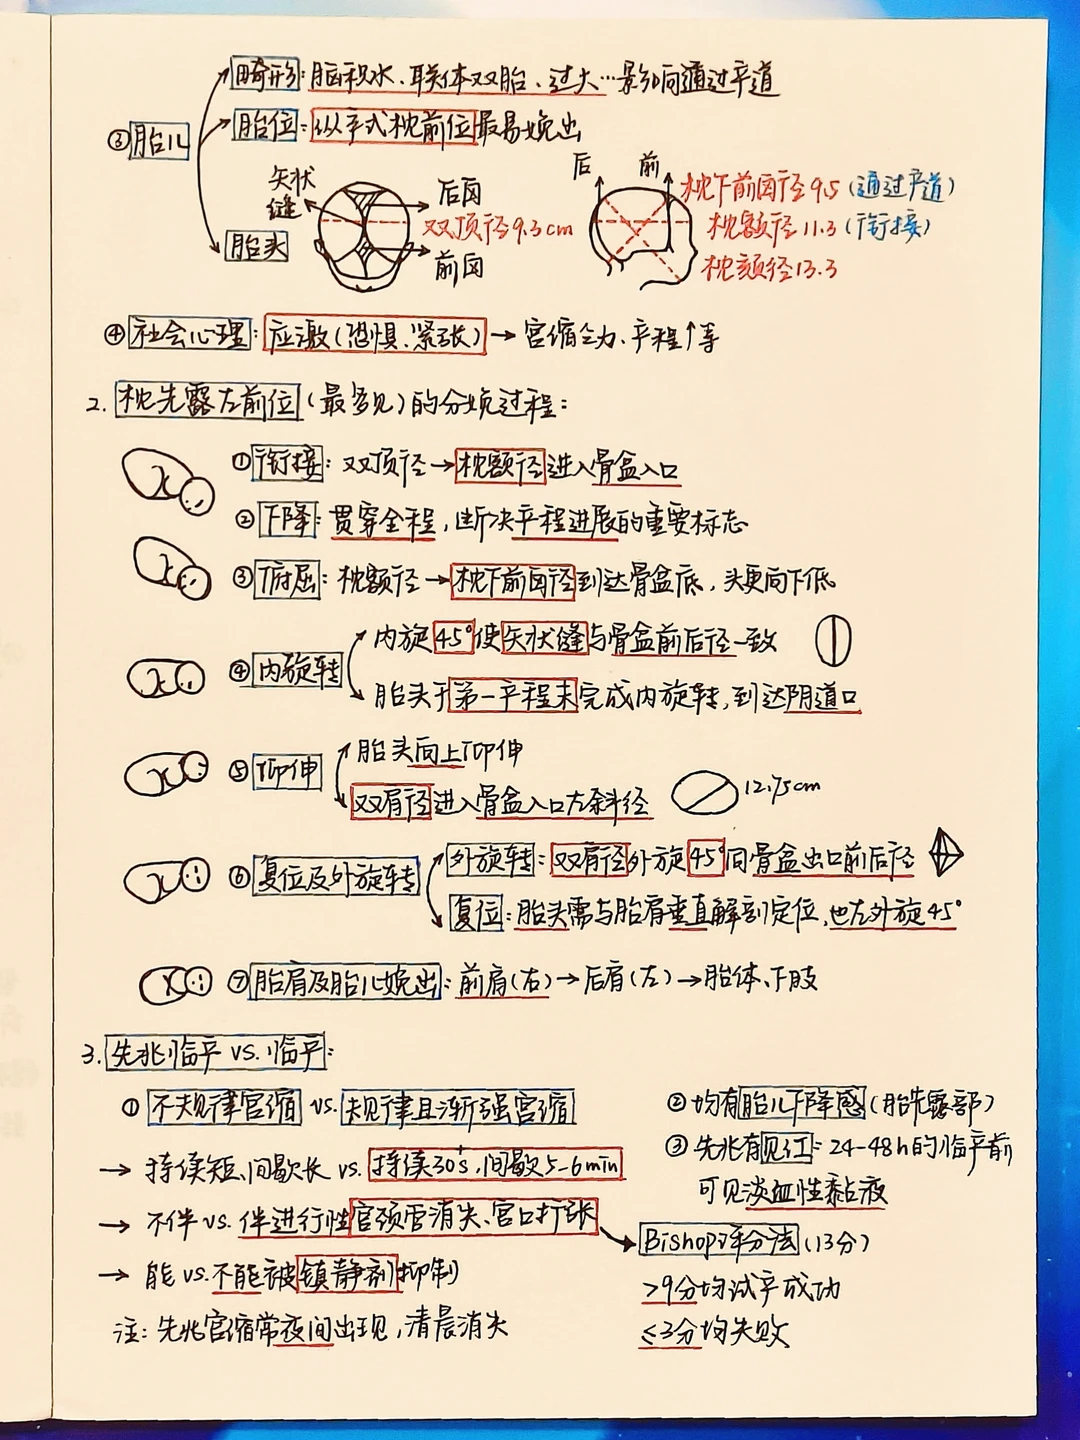 畸形：脑积水、联体双胎、过大…影响通过产道
③胎儿
胎位：纵产式枕前位最易娩出
矢状缝
后囟
双顶径9.3cm
前囟
胎头
后 前
枕下前囟径9.5（通过产道）
枕额径11.3（衔接）
枕颏径13.3
④社会心理：应激（恐惧、紧张）→宫缩乏力、产程↑等
2.枕先露左前位（最多见）的分娩过程：
①衔接：双顶径→枕额径进入骨盆入口
②下降：贯穿全程，断决产程进展的重要标志
③俯屈：枕额径→枕下前囟径到达骨盆底，头更向下低
④内旋转
内旋45°使矢状缝与骨盆前后径一致
胎头于第一产程末完成内旋转，到达阴道口
⑤仰伸
胎头向上仰伸
双肩径进入骨盆入口左斜径
12.75cm
⑥复位及外旋转
外旋转：双肩径外旋45°向骨盆出口前后径
复位：胎头需与胎肩垂直解剖定位，也左外旋45°
⑦胎肩及胎儿娩出：前肩（右）→后肩（左）→胎体、下肢
3.先兆临产 vs.临产：
①不规律宫缩 vs.规律且渐强宫缩
→持续短、间歇长 vs.持续30⁺s，间歇5-6min
→不伴 vs.伴进行性宫颈管消失、宫口扩张
→能 vs.不能被镇静剂抑制
注：先兆宫缩常夜间出现，清晨消失
②均有胎儿下降感（胎先露部）
③先兆有见红：24-48h的临产前
可见淡血性黏液
Bishop评分法（13分）
>9分均试产成功
≤3分均失败